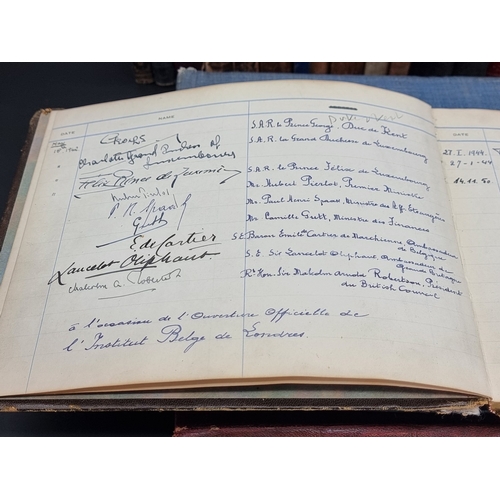 DATE NAME DATE
Duke of Kent
George S.A.R. le Prince George, Duc de Kent
Charlotte Grand Duchess of Luxembourg S.A.R. la Grand Duchesse de Luxembourg
S.A.R. le Prince Félix de Luxembourg
Mr. Hubert Pierlot, Premier Ministre
P. H. Spaak Mr. Paul Henri Spaak, Ministre des Aff. Etrangères
Gutt Mr. Camille Gutt, Ministre des Finances
E de Cartier S.E. Baron Emile Cartier de Marchienne, Ambassadeur de Belgique
Lancelot Oliphant S.E. Sir Lancelot Oliphant, Ambassadeur de Grande Bretagne
Malcolm A. Robertson Rt Hon. Sir Malcolm Arnold Robertson, Président
du British Council
à l'occasion de l'Ouverture Officielle de
l'Institut Belge de Londres.
27.I.1944
27-1-44
14.11.50